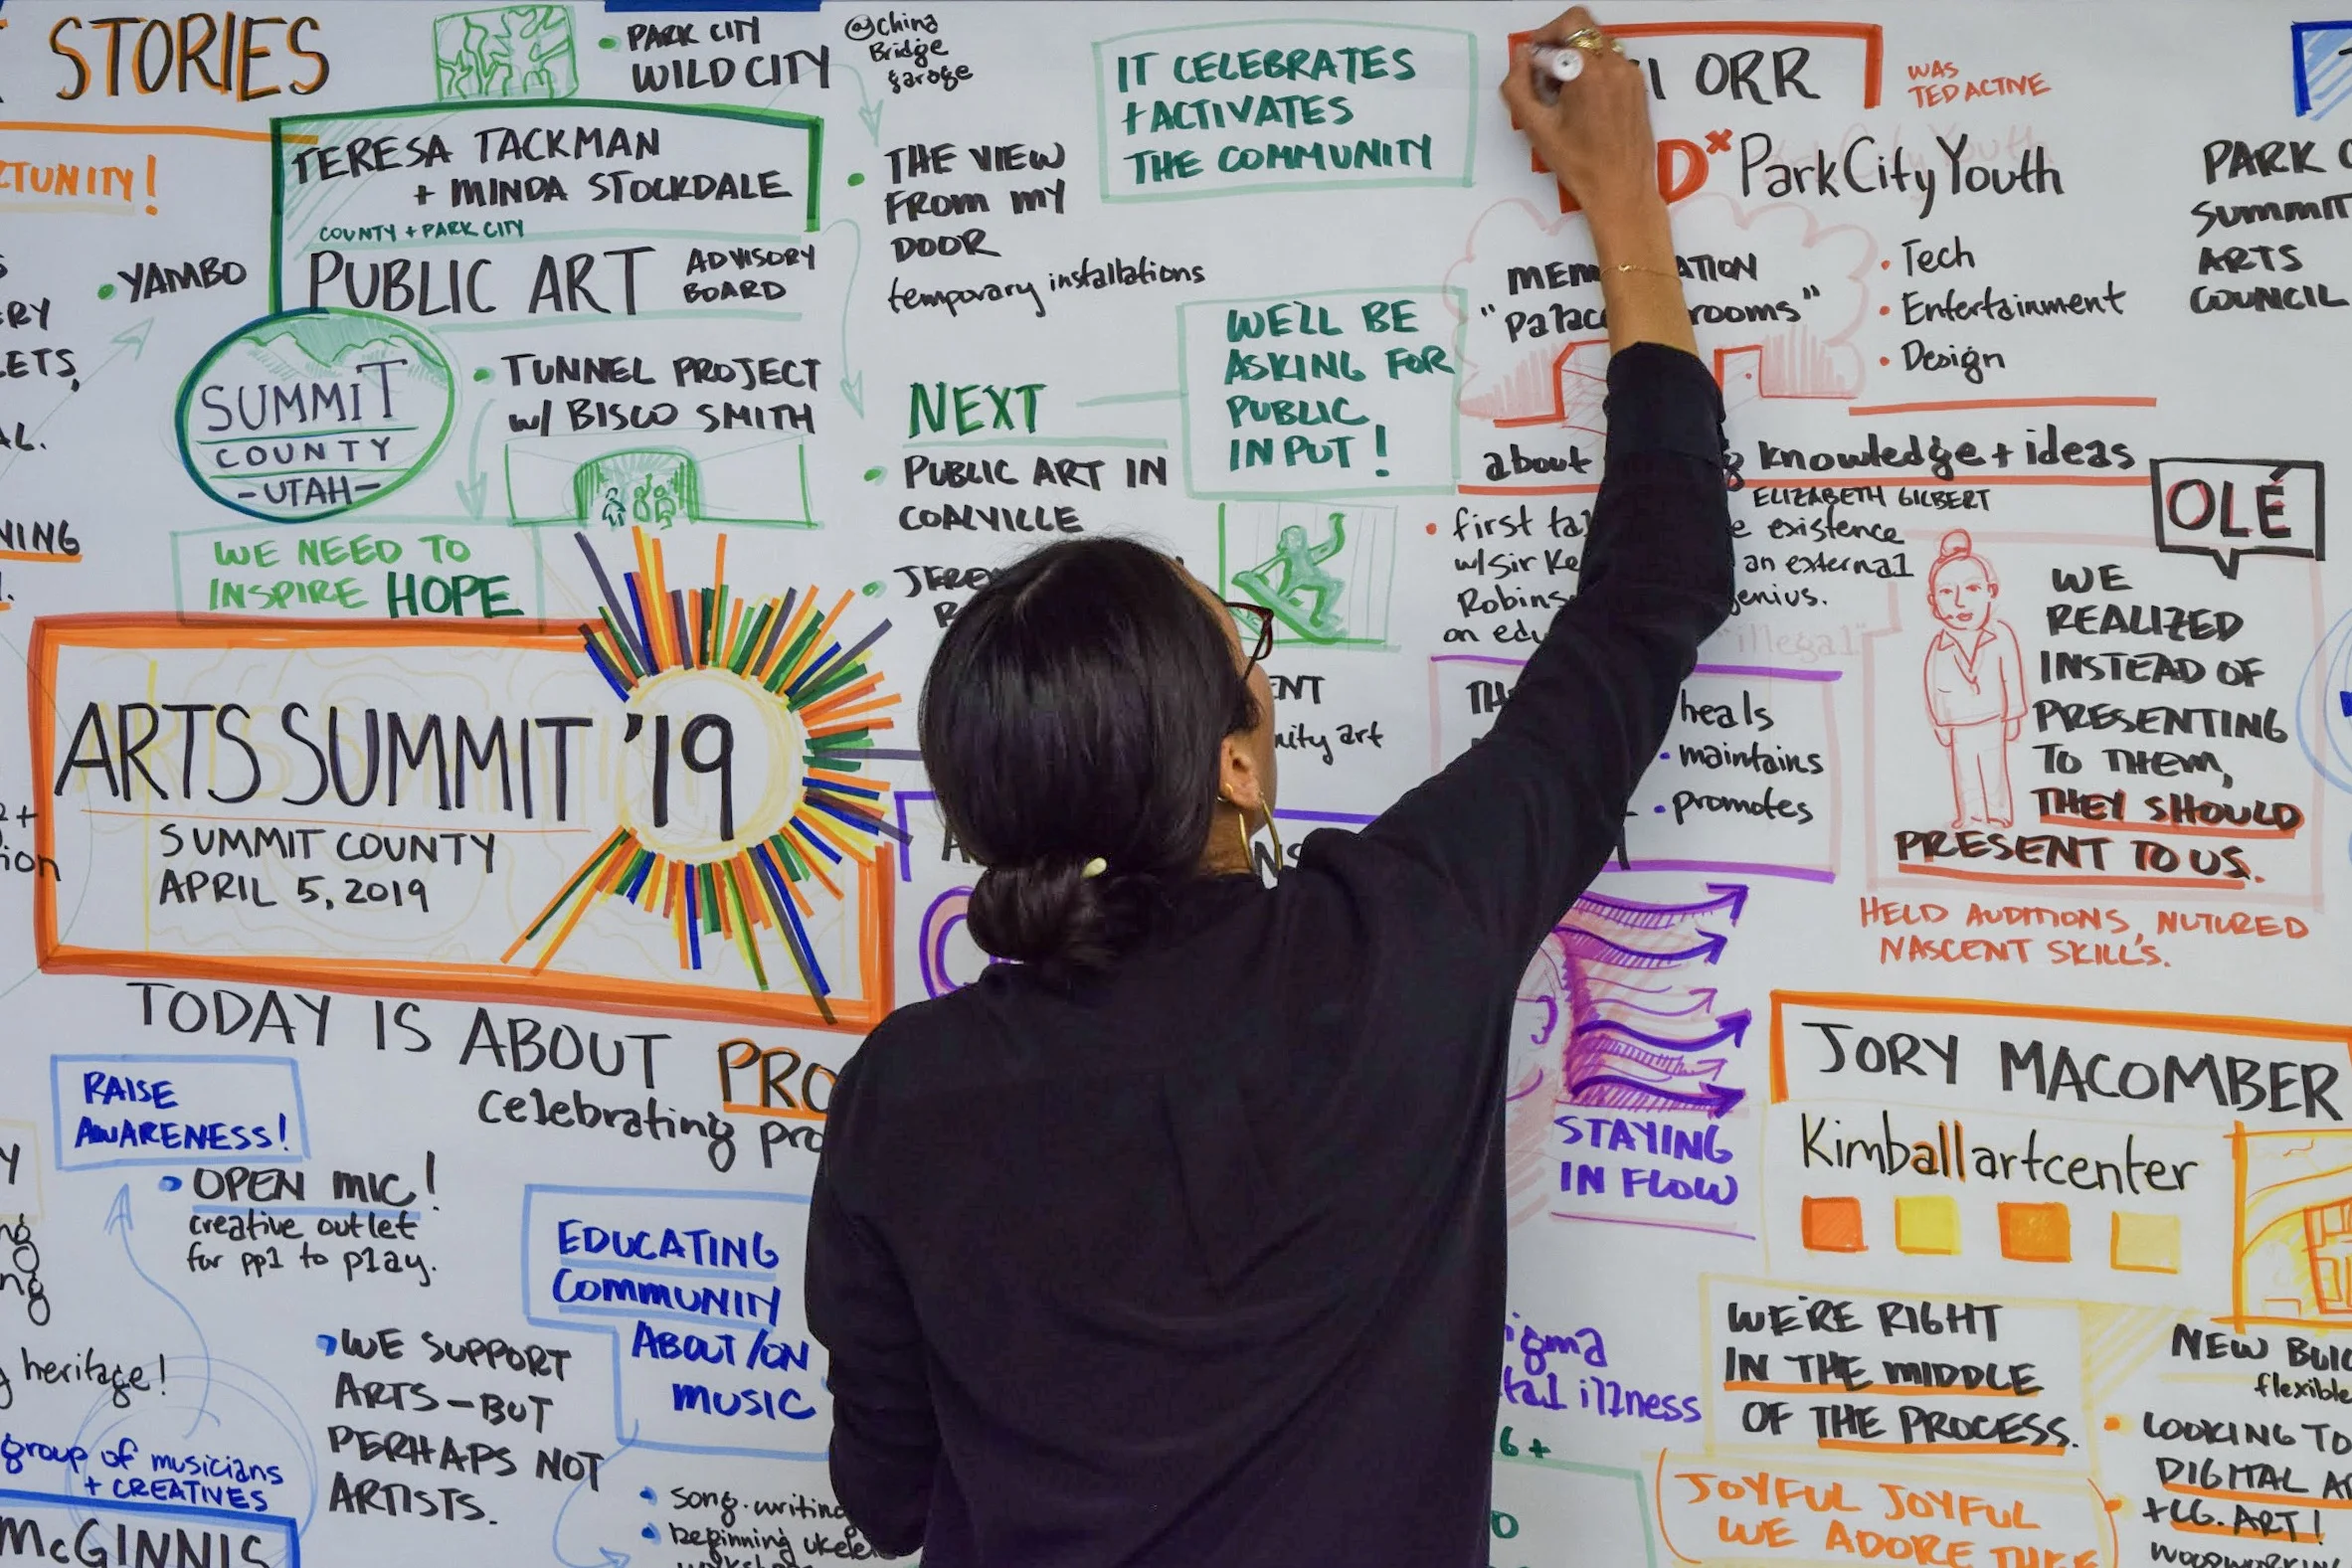 STORIES
YAMBO
PARK CITY
WILD CITY
@China
Bridge
garage
TERESA TACKMAN
+ MINDA STOCKDALE
COUNTY + PARK CITY
PUBLIC ART ADVISORY
BOARD
SUMMIT
COUNTY
-UTAH-
TUNNEL PROJECT
w/ BISCO SMITH
WE NEED TO
INSPIRE HOPE
THE VIEW
FROM MY
DOOR
temporary installations
NEXT
PUBLIC ART IN
COALVILLE
IT CELEBRATES
+ACTIVATES
THE COMMUNITY
WE'LL BE
ASKING FOR
PUBLIC
INPUT!
ORR
WAS
TED ACTIVE
ParkCityYouth
"Palace rooms"
Tech
Entertainment
Design
about knowledge + ideas
ELIZABETH GILBERT
first
w/ Sir
on
existence
an external
"illegal"
heals
maintains
promotes
OLÉ
WE
REALIZED
INSTEAD OF
PRESENTING
TO THEM,
THEY SHOULD
PRESENT TO US.
HELD AUDITIONS, NUTURED
NASCENT SKILL'S.
PARK
SUMMIT
ARTS
COUNCIL
ARTS SUMMIT '19
SUMMIT COUNTY
APRIL 5, 2019
TODAY IS ABOUT
celebrating
RAISE
AWARENESS!
OPEN MIC!
creative outlet
for ppl to play.
heritage!
group of musicians
+ CREATIVES
McGINNIS
WE SUPPORT
ARTS-BUT
PERHAPS NOT
ARTISTS.
EDUCATING
COMMUNITY
ABOUT/ON
MUSIC
song.writing
beginning
STAYING
IN FLOW
illness
JORY MACOMBER
Kimballartcenter
WE'RE RIGHT
IN THE MIDDLE
OF THE PROCESS.
JOYFUL JOYFUL
WE ADORE THEE
NEW
flexible
LOOKING TO
DIGITAL
+CG.ART!